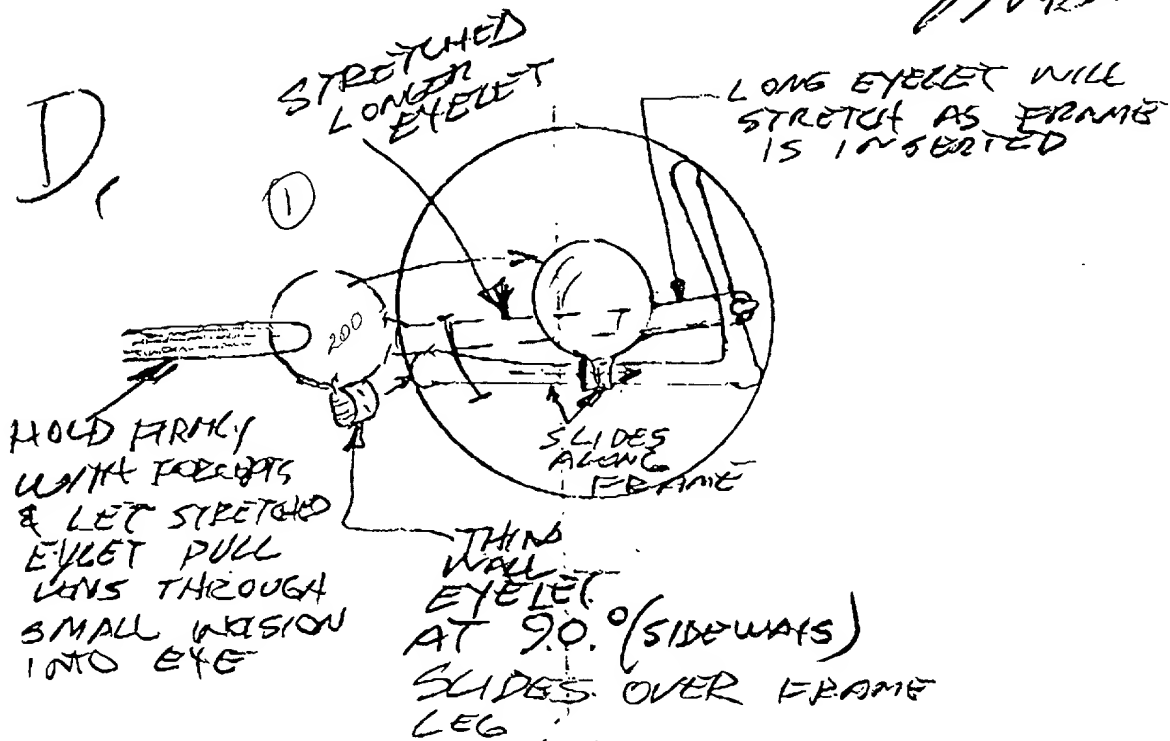 D,
1
STRETCHED
LONGER
EYELET
LONG EYELET WILL
STRETCH AS FRAME
IS INSERTED
200
HOLD FIRMLY
WITH FORCEPTS
& LET STRETCHED
EYLET PULL
LENS THROUGH
SMALL INCISION
INTO EYE
SLIDES
ALONG
FRAME
THIN
WALL
EYELET
AT 90.° (SIDEWAYS)
SLIDES OVER FRAME
LEG